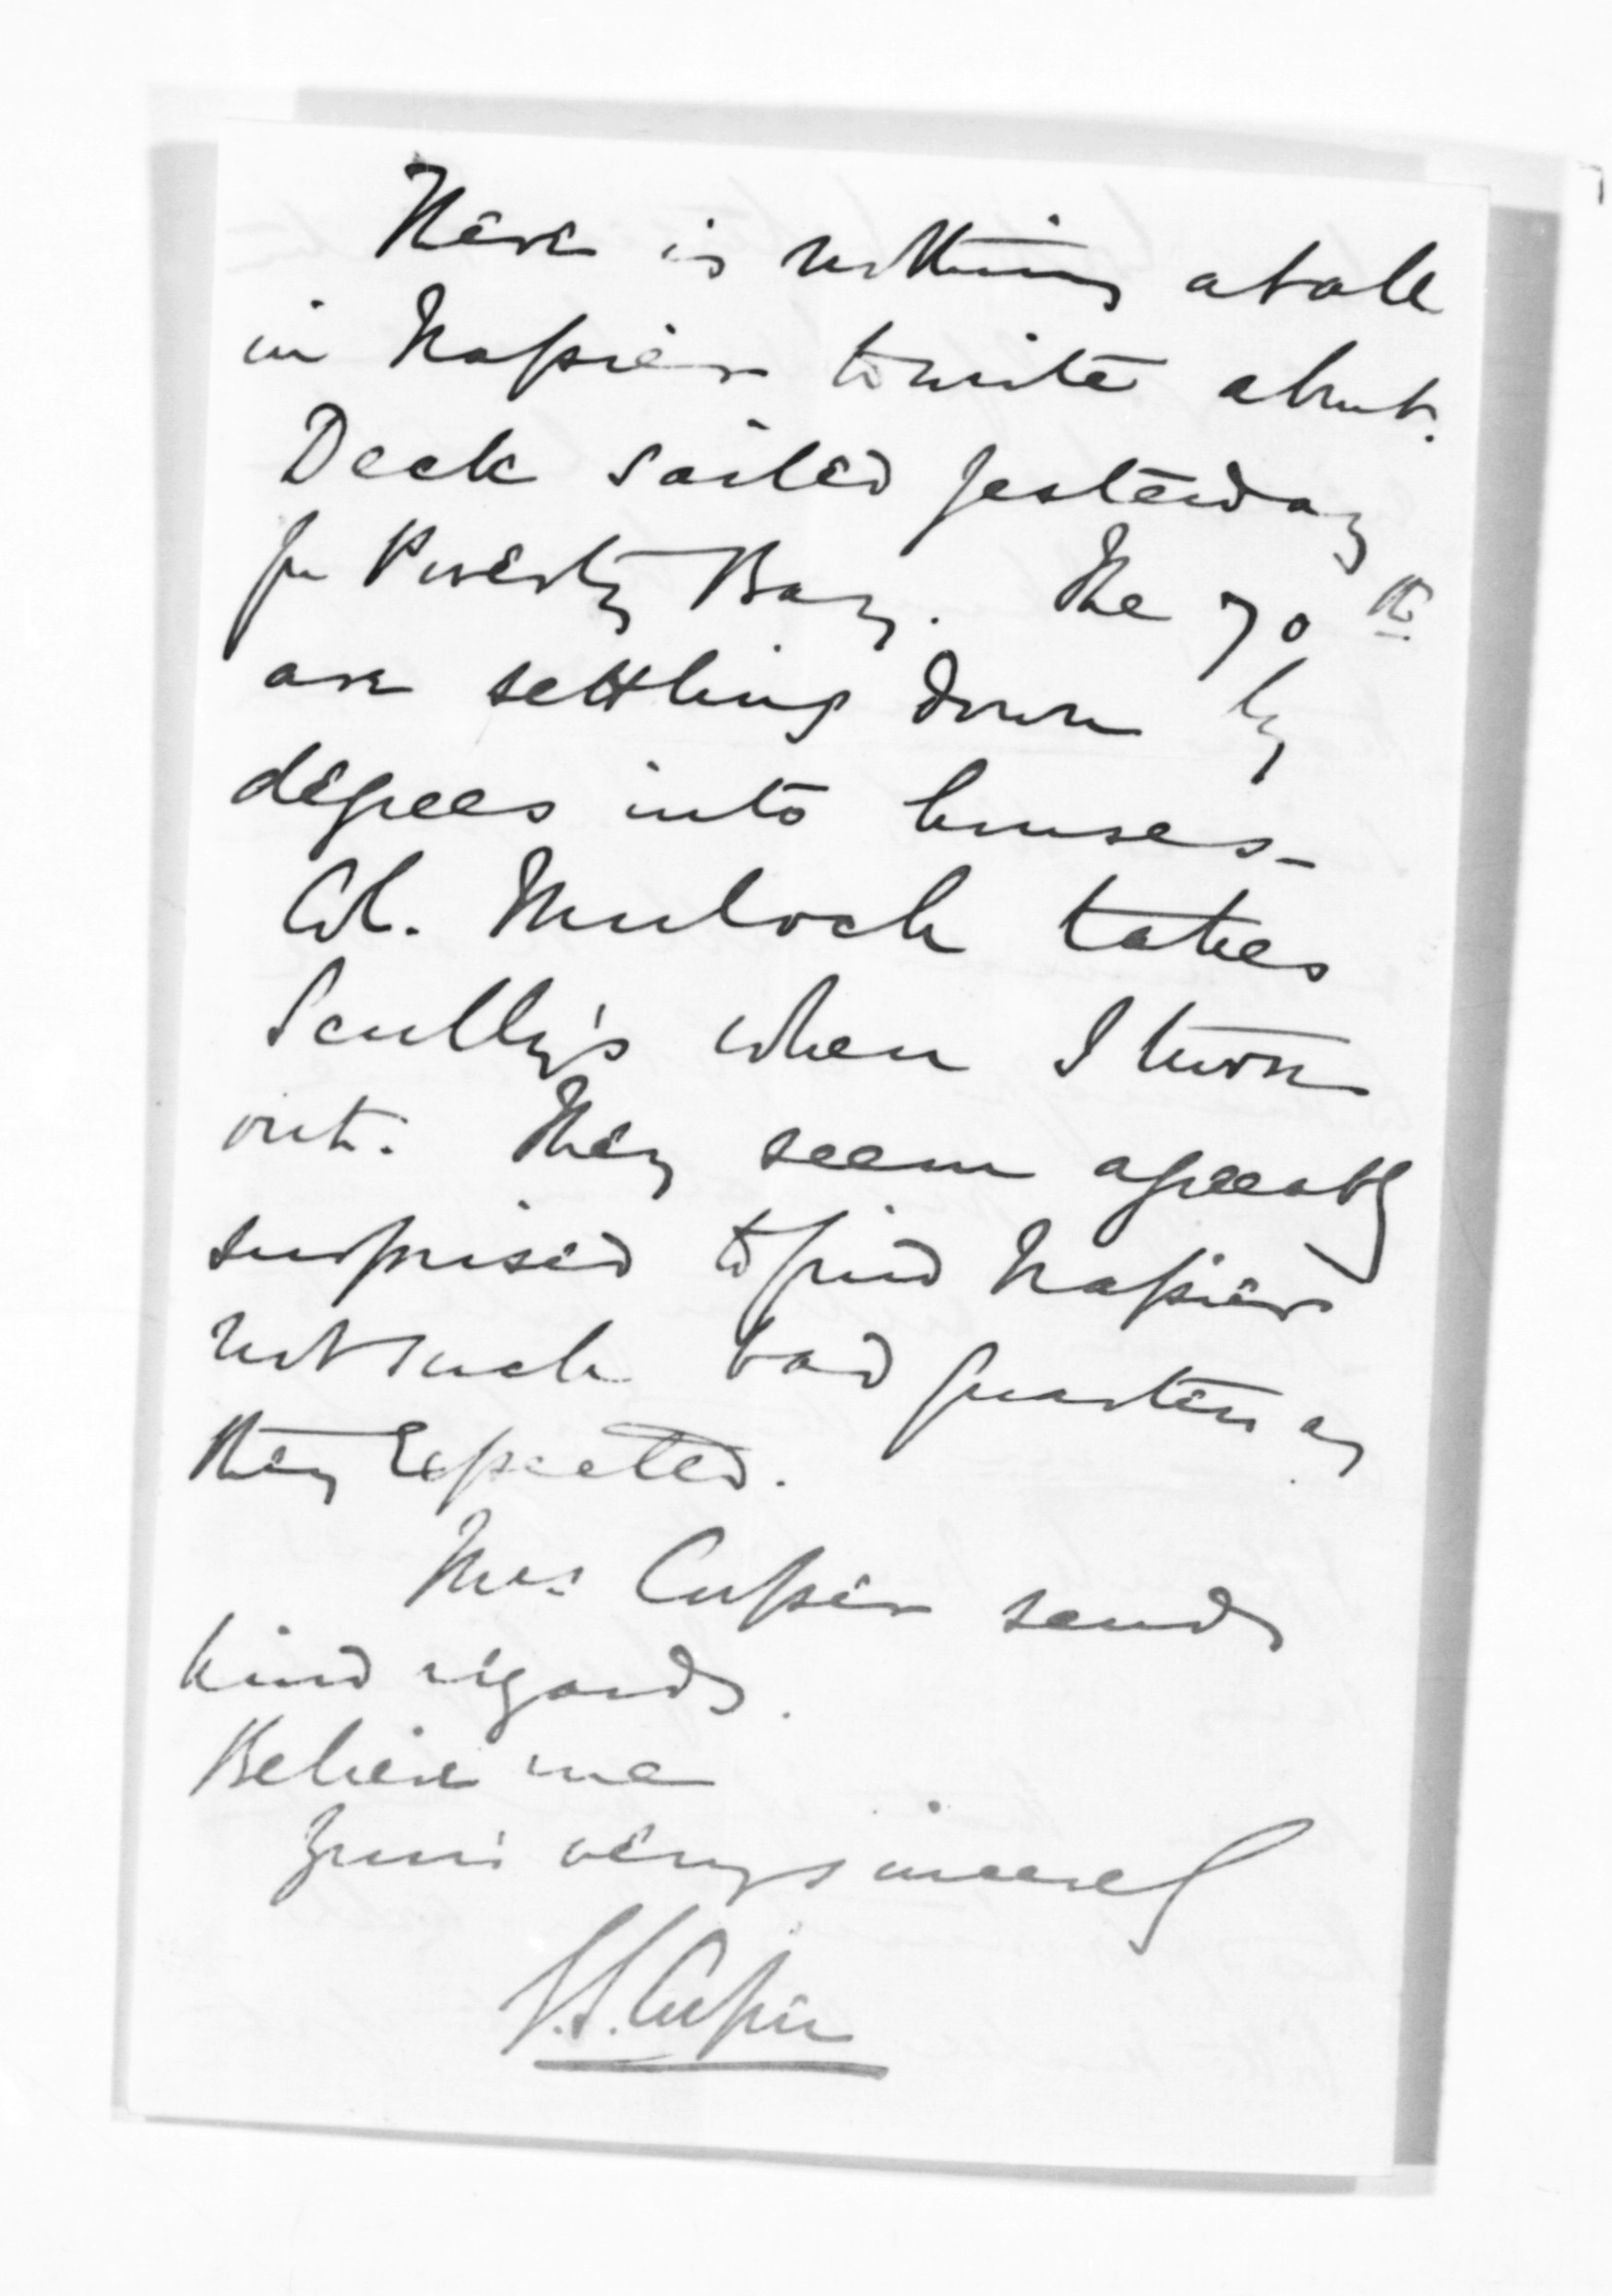 There is nothing at all
in Napier to write about.
Deck sailed yesterday
for Poverty Bay. The 70th
are settling down by
degrees into houses -
Col. Mulock takes
Scully's when I turn
out. They seem agreeably
surprised to find Napier
not such bad quarters as
they expected.
Mrs Cooper sends
kind regards.
Believe me
Yours very sincerely
Cooper